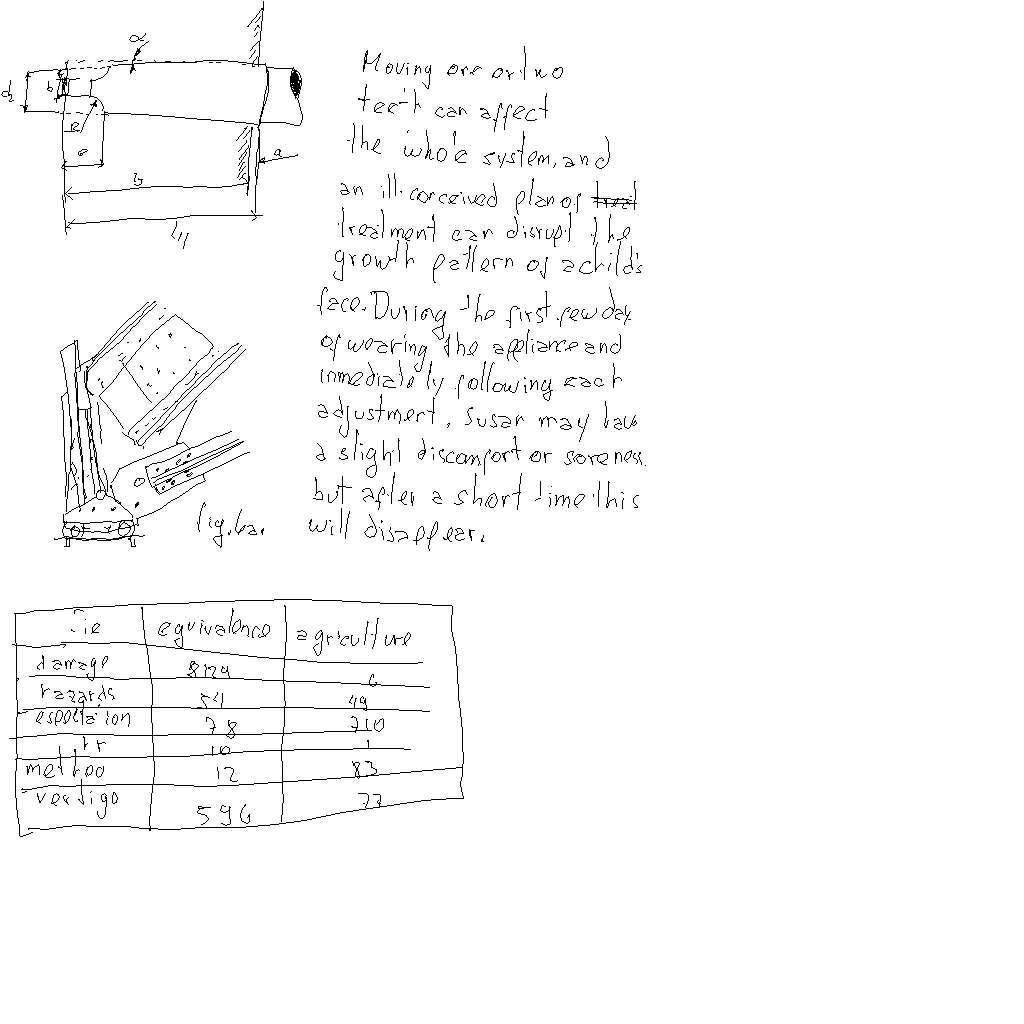 Moving one or two
teeth can affect
the whole system, and
an ill-conceived plan of treat
treatment can disrupt the
growth pattern of a child's
face. During the first few day
of wearing the appliance and
immediately following each
adjustment, Susan may have
a slight discomfort or soreness.
but after a short time this
will disappear.
α
d2
b
R
e
a
l3
l4
fig. 6a.
equivalence agriculture
damage 8129 6
hazards 54 49
78 710
hr 10 1
method 12 83
vertigo 596 77